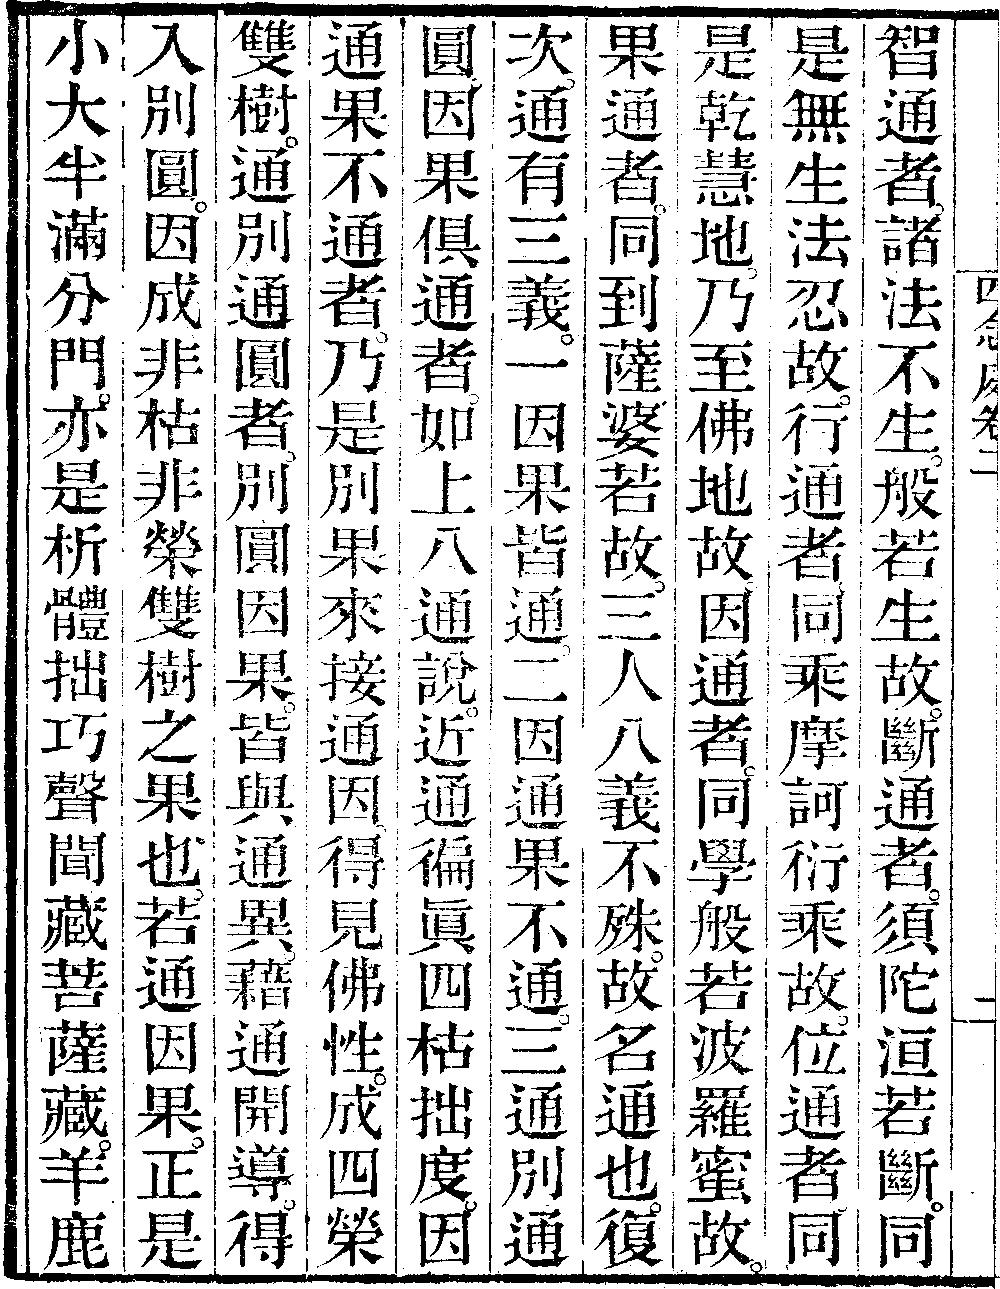 四念處卷二
二
智通者。諸法不生。般若生故。斷通者。須陀洹若斷。同
是無生法忍故。行通者。同乘摩訶衍乘故。位通者。同
是乾慧地。乃至佛地故。因通者。同學般若波羅蜜故。
果通者。同到薩婆若故。三人八義不殊。故名通也。復
次。通有三義。一因果皆通。二因通果不通。三通別通
圓。因果俱通者。如上八通說。近通徧眞四枯拙度。因
通果不通者。乃是別果來接通因。得見佛性。成四榮
雙樹。通別通圓者。別圓因果。皆與通異。藉通開導。得
入別圓。因成非枯非榮雙樹之果也。若通因果。正是
小大半滿分門。亦是析體拙巧聲聞藏菩薩藏。羊鹿